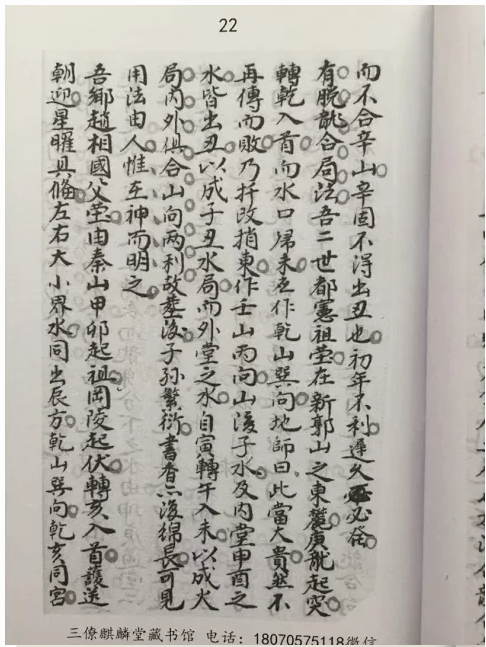 22
而不合辛山辛固不得出丑也初年不利遲久必發
有脫龍合局法吾二世都憲祖塋在新郭山之東麓庚龍起突
轉乾入首而水口歸未克作乾山巽向地師曰此當大貴然不
再傳而敗乃扦改捎東作壬山丙向山後子水及內堂申酉之
水皆出丑以成子丑水局而外堂之水自寅轉午入未以成火
局內外俱合山向兩利故塟後子孫繁衍書香亦後綿長可見
用法由人惟至神而明之
吾鄉趙相國父塋由秦山甲卯起祖岡陵起伏轉亥入首護送
朝迎星曜具備左右大小界水同出辰方乾山巽向乾亥同宮
三僚麒麟堂藏书馆 电话：18070575118微信